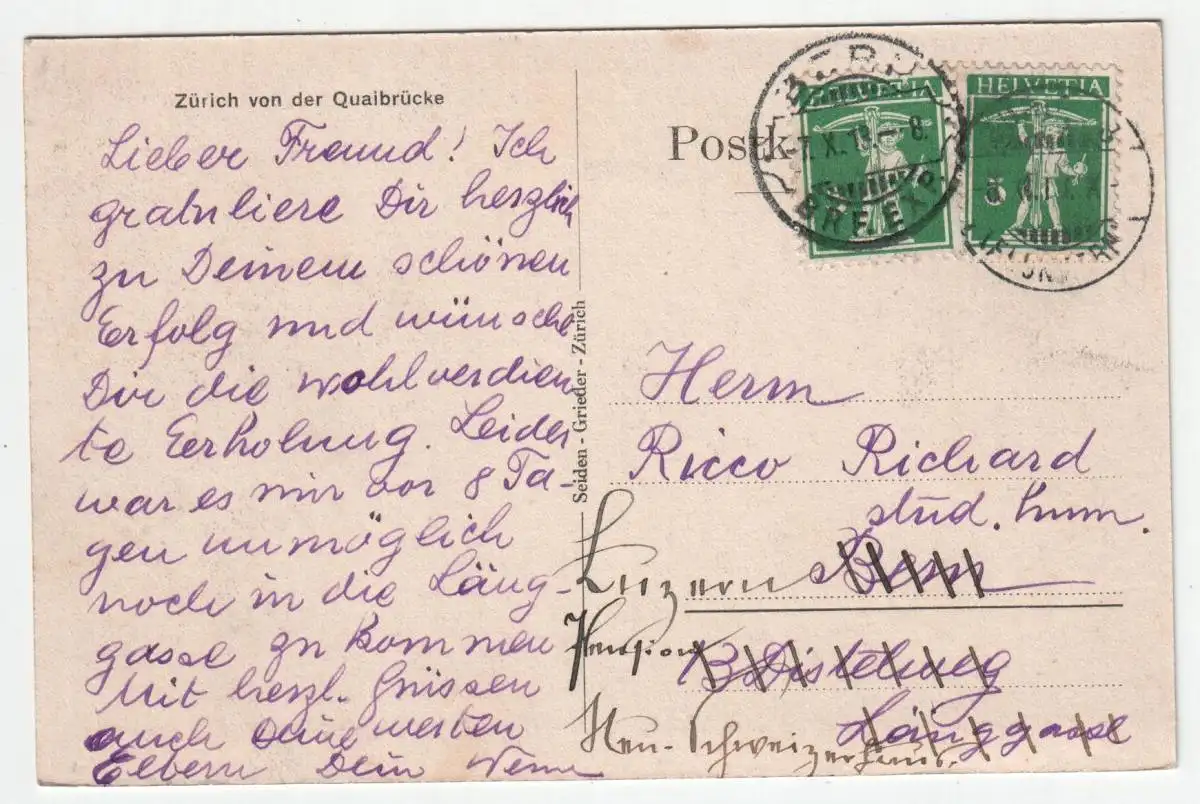 Zürich von der Quaibrücke
Lieber Freund! Ich
gratuliere Dir herzlich
zu Deinem schönen
Erfolg und wünsche
Dir die wohlverdien
te Eerholung. Leider
war es mir vor 8 Ta-
gen unmöglich
noch in die Läng-
gasse zu kommen
Mit herzl. Grüssen
auch Deine werten
Eltern Dein Werner
Seiden - Grieder - Zürich
Postk
HELVETIA
HELVETIA
5
BERN
X. 18. - 8.
BRF. EXP.
Herrn
Ricco Richard
stud. hum.
Luzern Bern
Pension
13 Distelweg
Länggasse
Neu-Schweizerhaus.